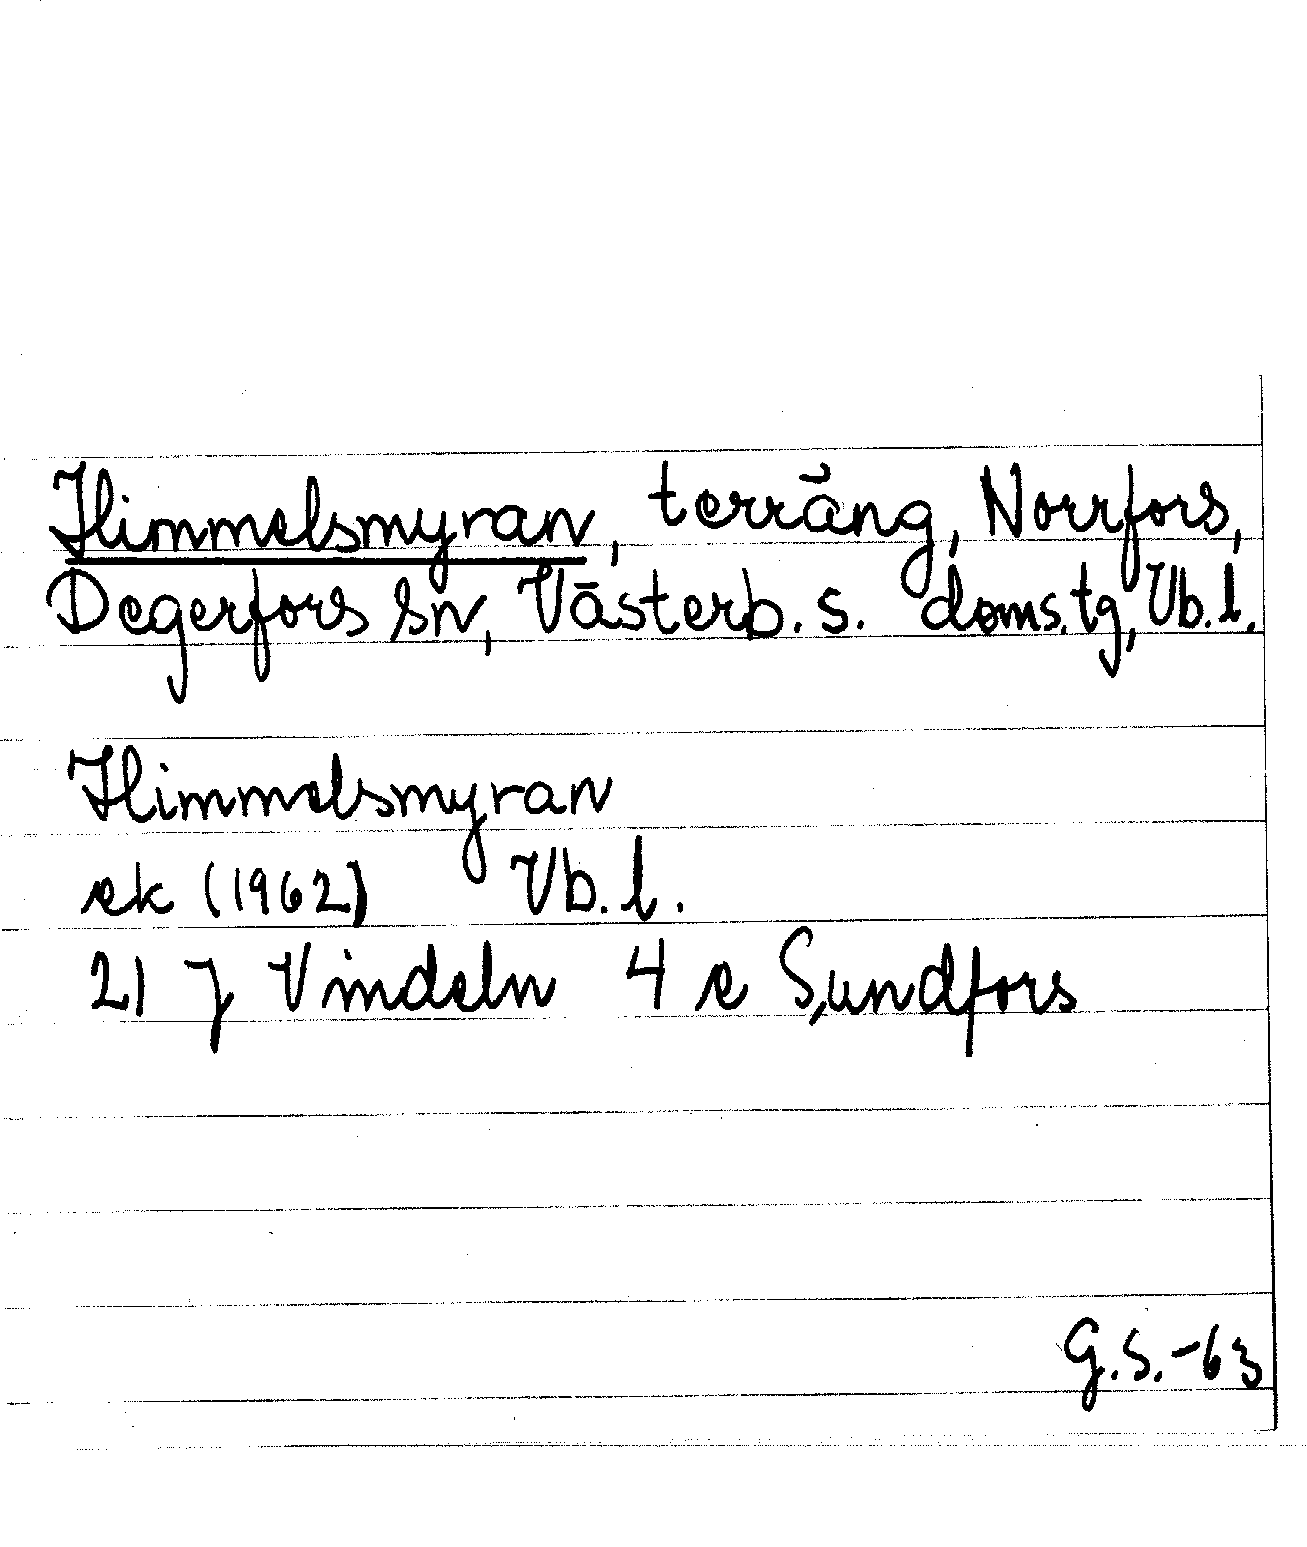 Himmelsmyran, terräng, Norrfors,
Degerfors sn, Västerb. s. doms.tg, Vb. l.
Himmelsmyran
ek (1962) Vb. l.
21 J Vindeln 4 e Sundfors
G.S.-63